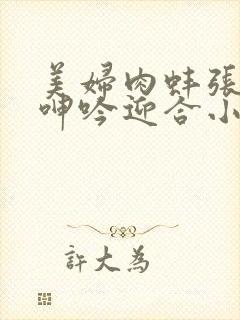 美婦肉蚌張
呻吟迎合小
許大為